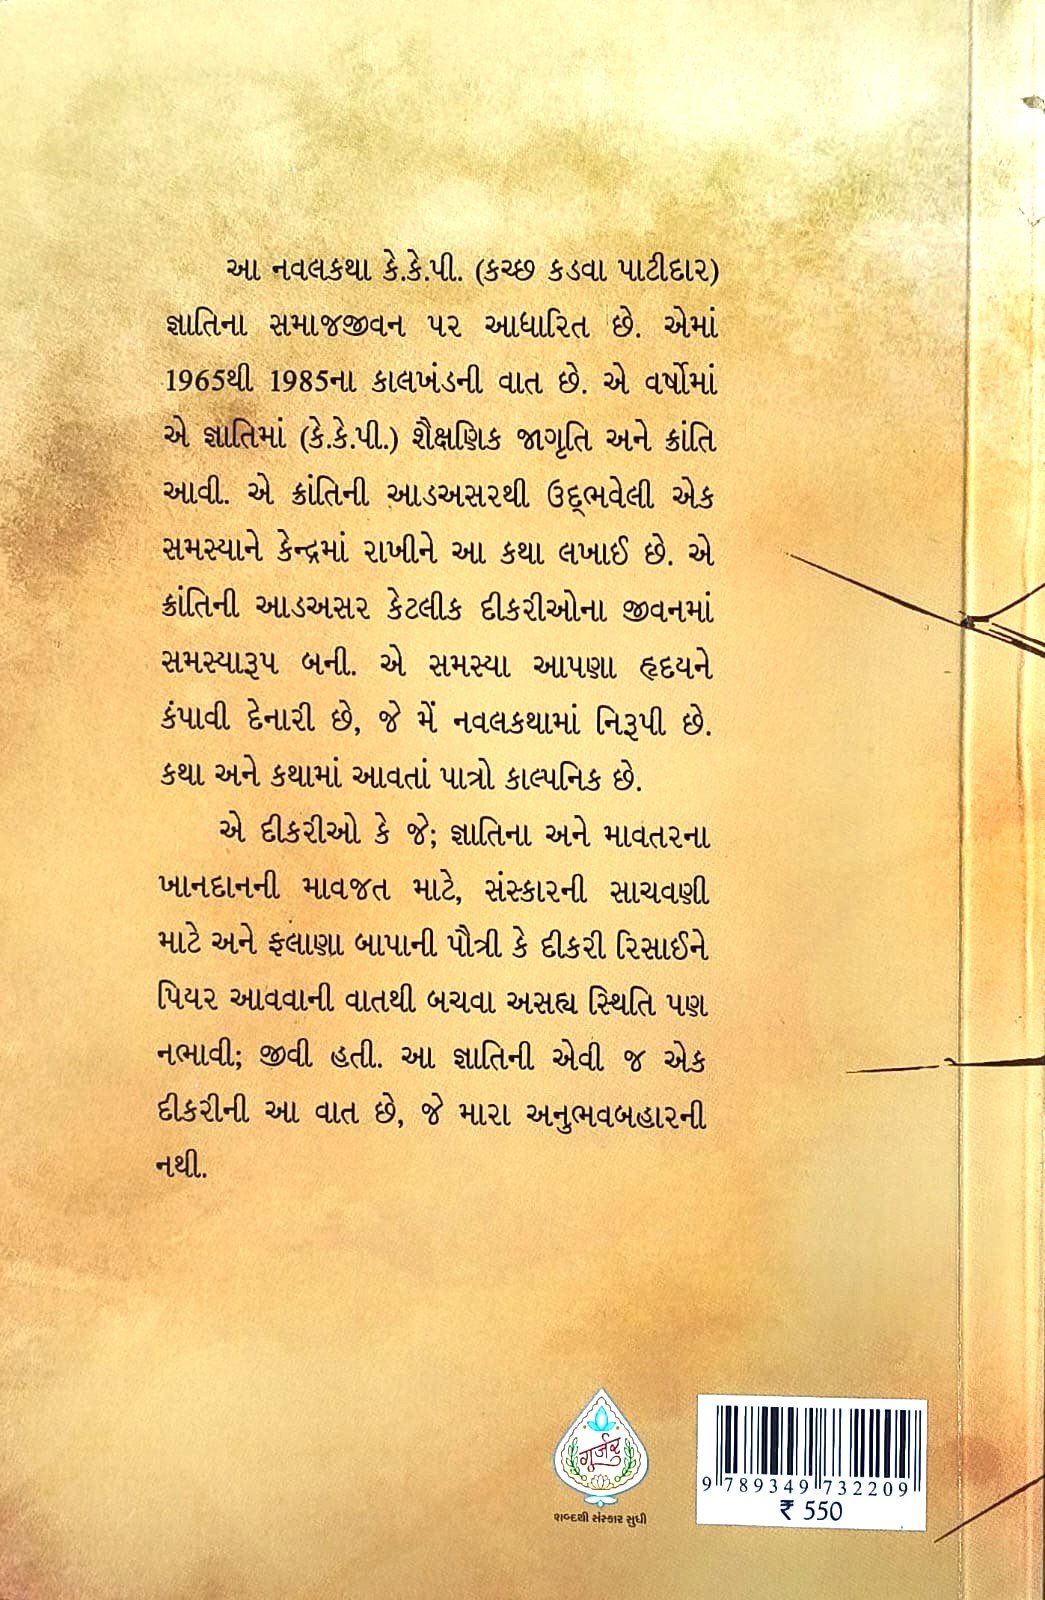 આ નવલકથા કે.કે.પી. (કચ્છ કડવા પાટીદાર)
જ્ઞાતિના સમાજજીવન પર આધારિત છે. એમાં
1965થી 1985ના કાલખંડની વાત છે. એ વર્ષોમાં
એ જ્ઞાતિમાં (કે.કે.પી.) શૈક્ષણિક જાગૃતિ અને ક્રાંતિ
આવી. એ ક્રાંતિની આડઅસરથી ઉદ્‌ભવેલી એક
સમસ્યાને કેન્દ્રમાં રાખીને આ કથા લખાઈ છે. એ
ક્રાંતિની આડઅસર કેટલીક દીકરીઓના જીવનમાં
સમસ્યારૂપ બની. એ સમસ્યા આપણા હૃદયને
કંપાવી દેનારી છે, જે મેં નવલકથામાં નિરૂપી છે.
કથા અને કથામાં આવતાં પાત્રો કાલ્પનિક છે.
એ દીકરીઓ કે જે; જ્ઞાતિના અને માવતરના
ખાનદાનની માવજત માટે, સંસ્કારની સાચવણી
માટે અને ફલાણા બાપાની પૌત્રી કે દીકરી રિસાઈને
પિયર આવવાની વાતથી બચવા અસહ્ય સ્થિતિ પણ
નભાવી; જીવી હતી. આ જ્ઞાતિની એવી જ એક
દીકરીની આ વાત છે, જે મારા અનુભવબહારની
નથી.
ગુર્જર
શબ્દથી સંસ્કાર સુધી
9 789349 732209
₹ 550